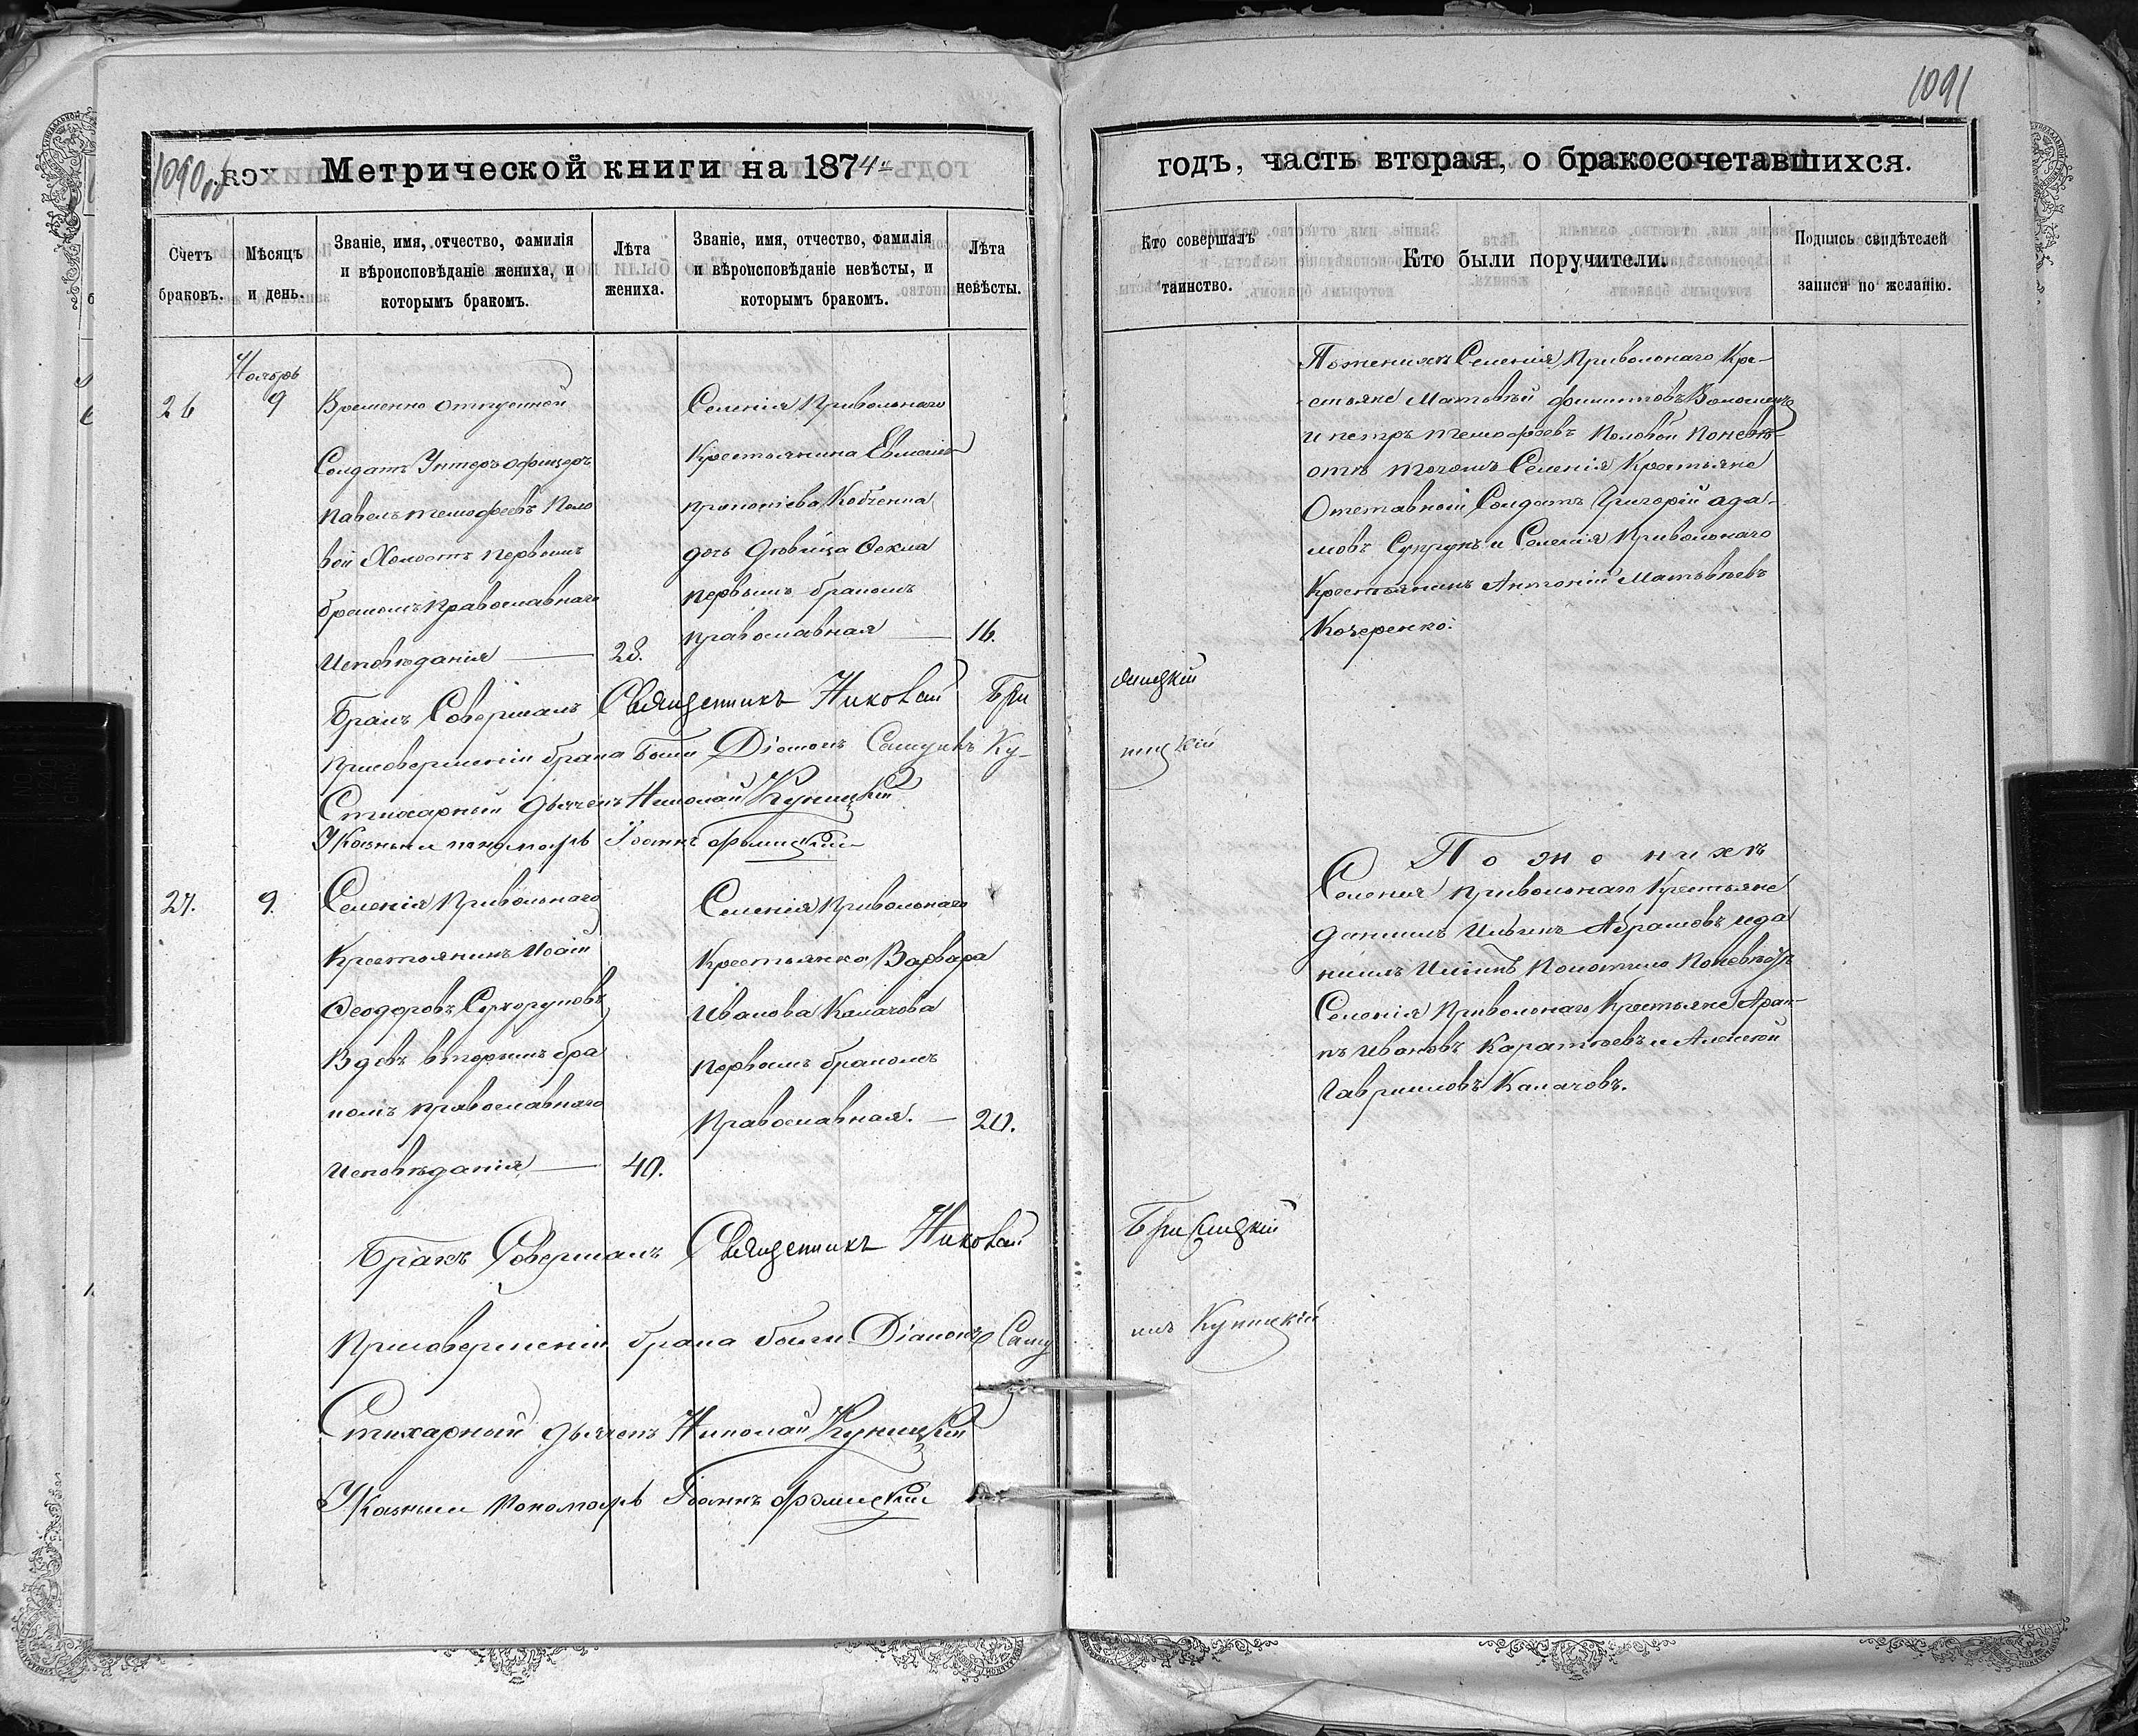 1091
1090 об
Метрической книги на 1874
годъ, часть вторая, о бракосочетавшихся.
Счетъ браковъ.
Мѣсяцъ и день.
Званіе, имя, отчество, фамилія
и вѣроисповѣданіе жениха, и
которымъ бракомъ.
Лѣта
жениха.
Званіе, имя, отчество, фамилія
и вѣроисповѣданіе невѣсты, и
которымъ бракомъ.
Лѣта
невѣсты.
Кто совершалъ
таинство.
Кто были поручители.
Подпись свидѣтелей
записи по желанію.
Ноябрь
26
9
Временно отпускной
Солдатъ Унтеръ офицеръ
Павелъ Тимофеевъ Поло
вой Холостъ первымъ
бракомъ православнаго
Исповѣданія
28.
Селенія Привольнаго
Крестьянина
дочь Девица
первымъ бракомъ
православная
16.
По женихѣ Селенія Привольнаго Кре-
стьяне Матвѣй Филиповъ
и Петръ Тимофеевъ Половой По невѣ-
стѣ тогожъ Селенія Крестьяне
Отставной Солдатъ Григорій Ада-
мовъ Супрунъ и Селенія Привольнаго
Крестьянинъ Антоній Матвѣевъ
Кочеренко.
Бракъ Совершалъ Священникъ Николай Бри
лицкій
При совершеніи брака были Діаконъ Ку-
ницкій
Стихарный дьячекъ Николай Куницкій
Указный пономарь Іоаннъ
27.
9.
Селенія Привольнаго
Крестьянинъ Исаій
Феодоровъ Сухоруковъ
Вдовъ вторымъ бра
комъ православнаго
Исповѣданія
40.
Селенія Привольнаго
Крестьянка Варвара
Иванова Калачова
первымъ бракомъ
Православная.
20.
По женихѣ
Селенія Привольнаго Крестьяне
Даніилъ Ильинъ Абрамовъ и Да
ніилъ По невѣстѣ
Селенія Привольнаго Крестьяне
Ивановъ и Алексѣй
Гавриловъ Калачовъ.
Бракъ Совершалъ Священникъ Николай
Брилицкій
При совершеніи брака были Діаконъ
Куницкій
Стихарный дьячекъ Николай Куницкій
Указный Пономарь Іоаннъ